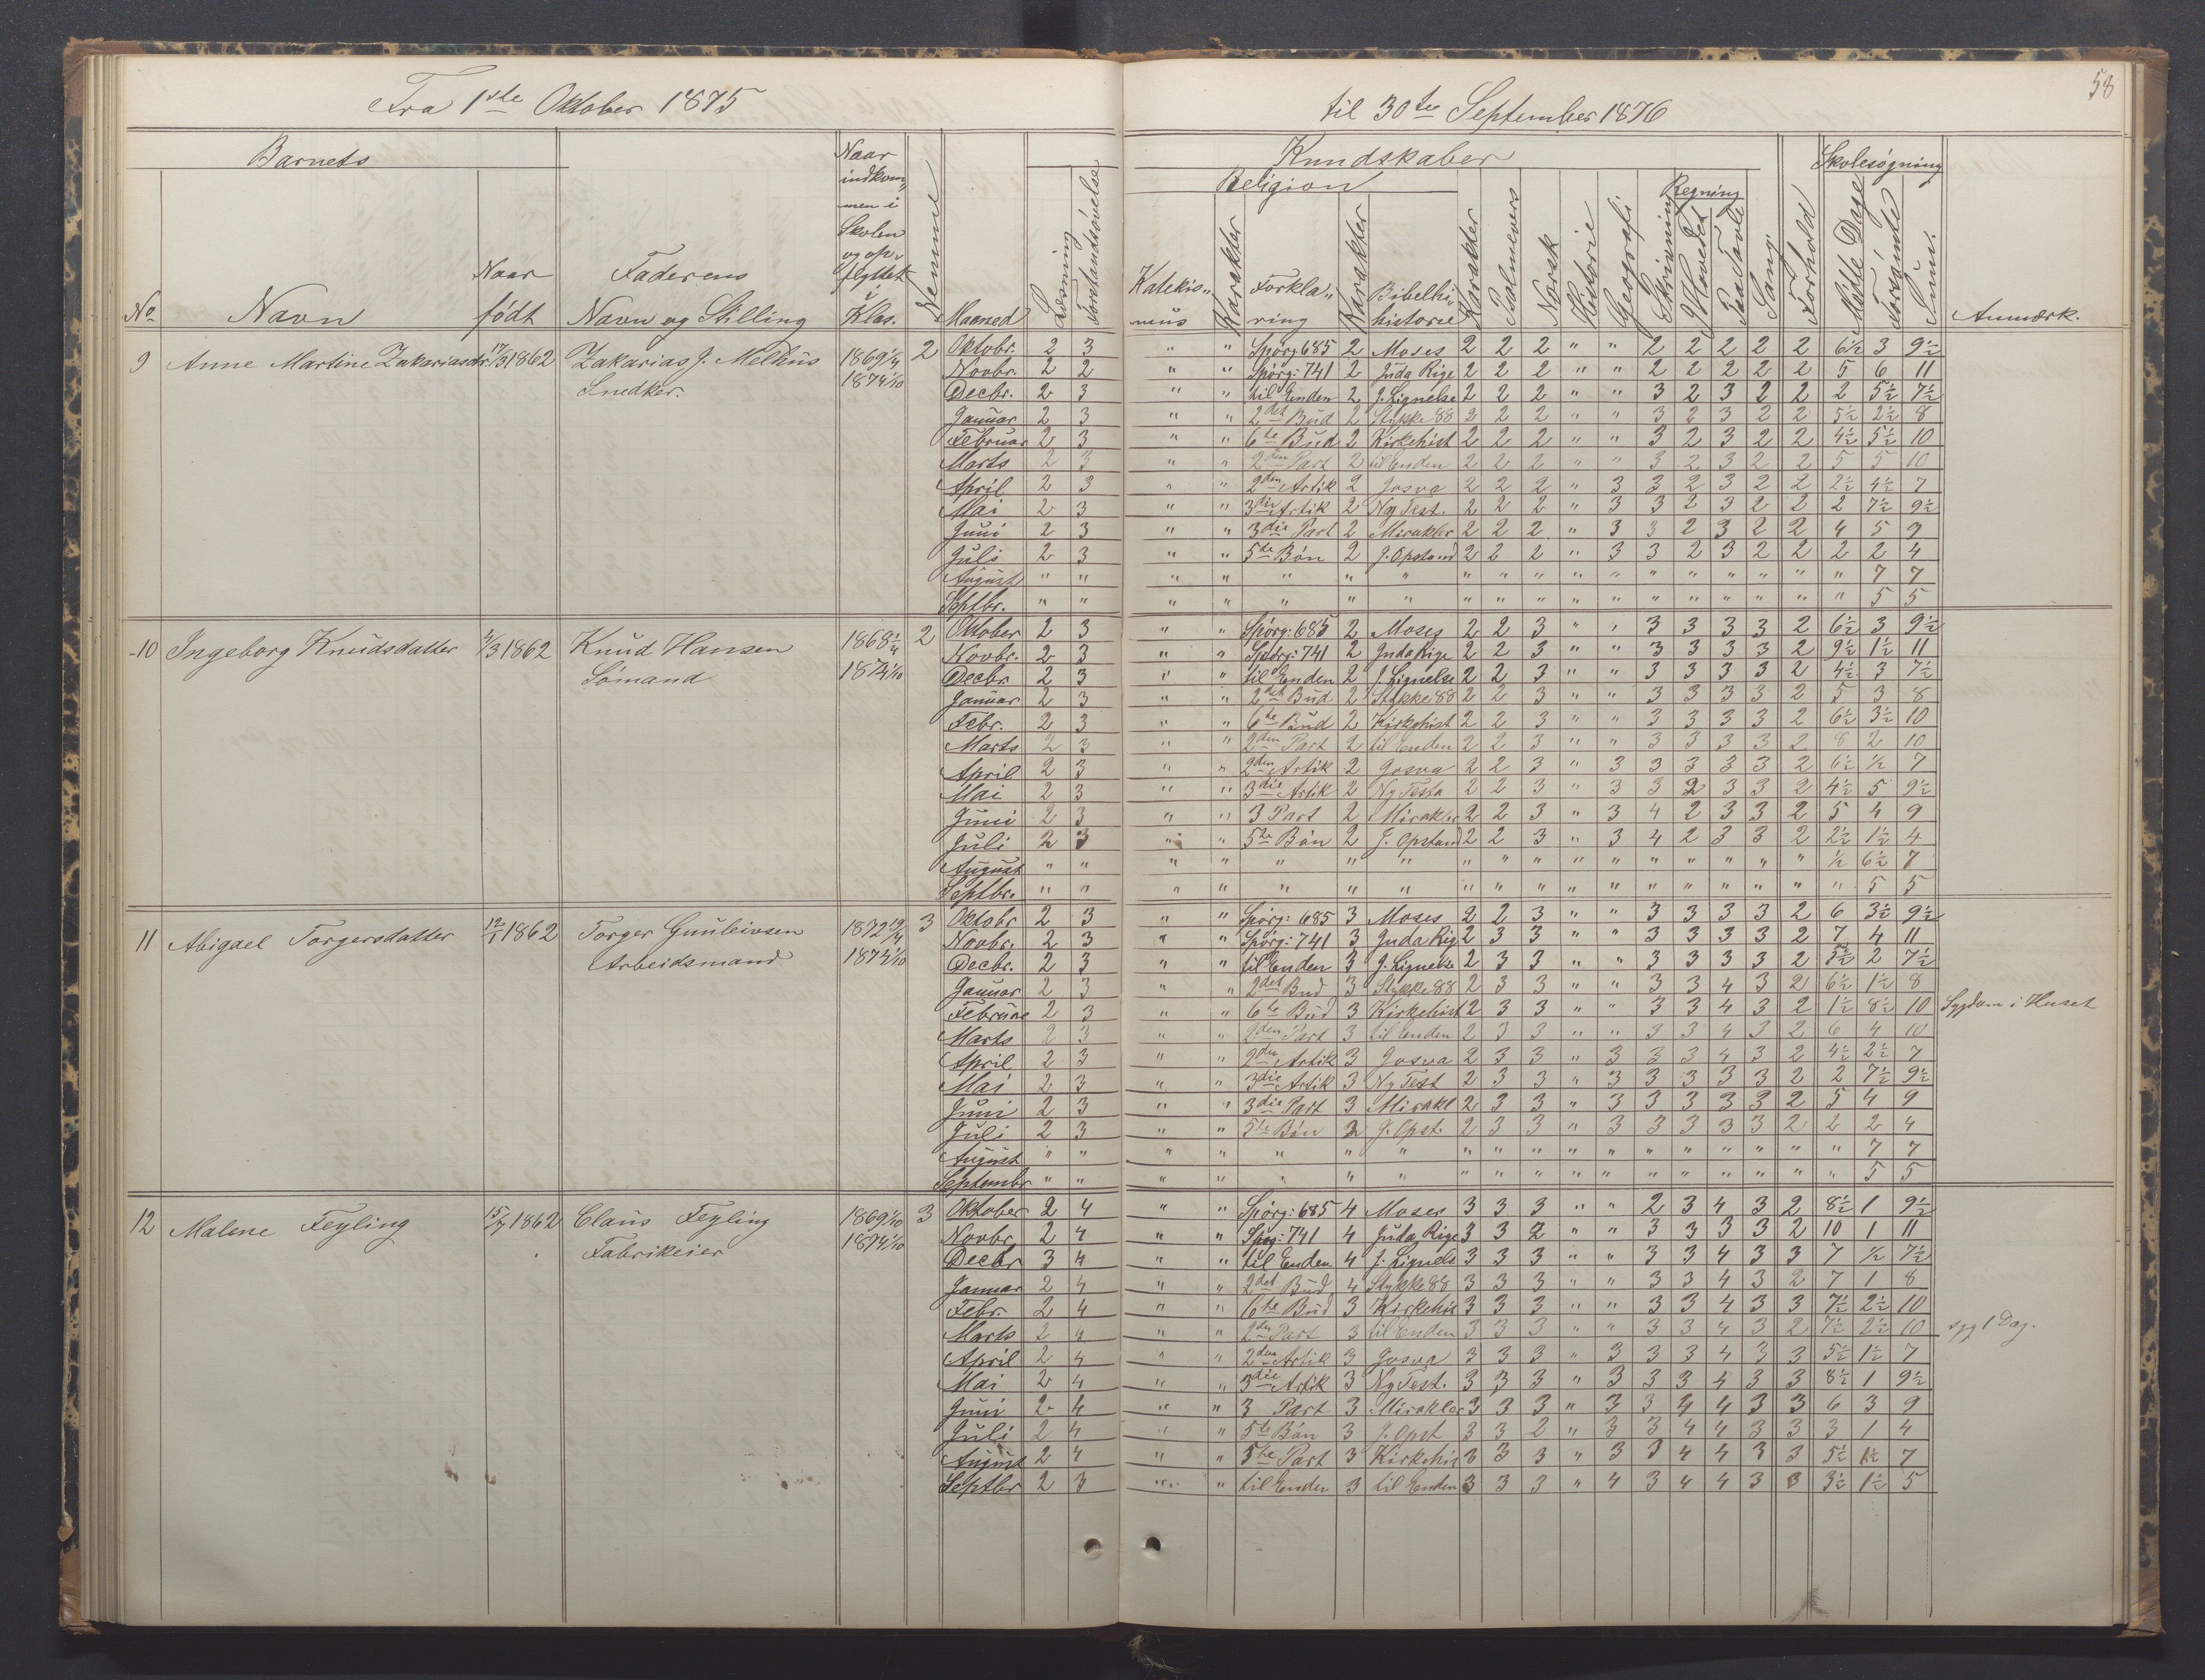 58
Fra 1ste Oktober 1875 til 30te September 1876
Barnets Kundskaber Skolesøgning
Religion Regning
No Navn Naar født Faderens Navn og Stilling Naar indkommen i Skolen og opflyttet i Klas. Nemme Maaned Læsning Forstandsøvelse Katekismus Karakter Forklaring Karakter Bibelhihistorie Karakter Psalmevers Norsk Historie Geografi Skrivning I Hovedet Paa Tavle Sang Forhold Mødte Dage Forsømte Sum. Anmærk.
9 Anne Martine Zakariasdr. 17/3 1862 Zakarias J. Melhus 1869 1/4 2 Oktobr. 2 3 " " Spørg 685 2 Moses 2 2 2 " " 2 2 2 2 2 6½ 3 9½
Snedker. 1874 1/10 Novbr. 2 2 " " Spørg: 741 2 Juda Rige 2 2 2 " " 2 2 2 2 2 5 6 11
Decbr. 2 3 " " til Enden 2 J. Lignelse 2 2 2 " " 3 2 3 2 2 2 5½ 7½
Januar 2 3 " " 2det Bud 2 Stykke 88 2 2 2 " " 3 2 3 2 2 5½ 2½ 8
Februar 2 3 " " 6te Bud 2 Kirkehist 2 2 2 " " 3 2 3 2 2 4½ 5½ 10
Marts 2 3 " " 2den Part 2 til Enden 2 2 2 " " 3 2 3 2 2 5 5 10
April 2 3 " " 2den Artik 2 Josva 2 2 2 " 3 3 2 3 2 2 2½ 4½ 7
Mai 2 3 " " 3die Artik 2 Ny Test. 2 2 2 " 3 3 2 3 2 2 2 7½ 9½
Juni 2 3 " " 3die Part 2 Mirakler 2 2 2 " 3 3 2 3 2 2 4 5 9
Juli 2 3 " " 5te Bøn 2 J. Opstand 2 2 2 " 3 3 2 3 2 2 2 2 4
August " " " " " " " " " " " " " " " " " " 7 7
Septbr. " " " " " " " " " " " " " " " " " " 5 5
10 Ingeborg Knudsdatter 4/3 1862 Knud Hansen 1868 1/4 2 Oktober 2 3 " " Spørg: 685 2 Moses 2 2 3 " " 3 3 3 3 2 6½ 3 9½
Sömand 1874 1/10 Novbr. 2 3 " " Spørg: 741 2 Juda Rige 2 2 3 " " 3 3 3 3 2 9½ 1½ 11
Decbr. 2 3 " " til Enden 2 J. Lignelse 2 2 3 " " 3 3 3 3 2 4½ 3 7½
Januar 2 3 " " 2det Bud 2 Stykke 88 2 2 3 " " 3 3 3 3 2 5 3 8
Febr. 2 3 " " 6te Bud 2 Kirkehist 2 2 3 " " 3 3 3 3 2 6½ 3½ 10
Marts 2 3 " " 2den Part 2 til Enden 2 2 3 " " 3 3 3 3 2 8 2 10
April 2 3 " " 2den Artik 2 Josva 2 2 3 " 3 3 3 3 3 2 6½ ½ 7
Mai 2 3 " " 3die Artik 2 Ny Testa 2 2 3 " 3 3 2 3 3 2 4½ 5 9½
Juni 2 3 " " 3 Part 2 Mirakler 2 2 3 " 3 4 2 3 3 2 5 4 9
Juli 2 3 " " 5te Bøn 2 J. Opstand 2 2 3 " 3 4 2 3 3 2 2½ 1½ 4
August " " " " " " " " " " " " " " " " " ½ 6½ 7
Septbr. " " " " " " " " " " " " " " " " " " 5 5
11 Abigael Torgersdatter 12/1 1862 Torger Gunleivsen 1872 19/4 3 Oktobr 2 3 " " Spørg: 685 3 Moses 2 2 3 " " 3 3 3 3 2 6 3½ 9½
Arbeidsmand 1874 1/10 Novbr. 2 3 " " Spørg: 741 3 Juda Rig 2 3 3 " " 3 3 3 3 2 7 4 11
Decbr. 2 3 " " til Enden 3 J. Lignelse 2 3 3 " " 3 3 3 3 2 5½ 2 7½
Januar 2 3 " " 2det Bud 3 Stykke 88 2 3 3 " " 3 3 4 3 2 6½ 1½ 8
Februar 2 3 " " 6te Bud 3 Kirkehist 2 3 3 " " 3 3 4 3 2 1½ 8½ 10 Sygdom i Huset
Marts 2 3 " " 2den Part 3 til Enden 2 3 3 " " 3 3 4 3 2 6 4 10
April 2 3 " " 2den Artik 3 Josva 2 3 3 " 3 3 3 4 3 2 4½ 2½ 7
Mai 2 3 " " 3die Artik 3 Ny Test 2 3 3 " 3 3 3 3 3 2 2 7½ 9½
Juni 2 3 " " 3die Part 3 Mirakl 2 3 3 " 3 3 3 3 3 2 5 4 9
Juli 2 3 " " 5te Bøn J. Opst. 2 3 3 " 3 3 3 3 3 2 2 2 4
August " " " " " " " " " " " " " " " " " " 7 7
Septembr " " " " " " " " " " " " " " " " " " 5 5
12 Malene Feyling 15/7 1862 Claus Feyling 1869 1/10 3 Oktober 2 4 " " Spørg: 685 4 Moses 3 3 3 " " 2 3 4 3 2 8½ 1 9½
Fabrikeier 1874 1/10 Novbr 2 4 " " Spørg: 741 4 Juda Rige 3 3 2 " " 3 3 3 3 2 10 1 11
Decbr 3 4 " " til Enden 4 J. Lignels 3 3 3 " " 3 3 4 3 3 7 ½ 7½
Januar 2 4 " " 2det Bud 4 Stykke 88 3 3 3 " " 3 3 4 3 2 7 1 8
Febr. 2 4 " " 6te Bud 3 Kirkehis 3 3 3 " " 3 3 4 3 3 7½ 2½ 10
Marts 2 4 " " 2den Part 3 til Enden 3 3 3 " " 3 3 4 3 2 7½ 2½ 10 syg 1 Dag.
April 2 4 " " 2den Artik 3 Josva 3 3 3 " 3 3 3 4 3 3 5½ 1½ 7
Mai 2 4 " " 3die Artik 3 Ny Test. 3 3 3 " 3 3 3 4 3 3 8½ 1 9½
Juni 2 4 " " 3 Part 3 Mirakler 3 3 3 " 3 3 4 4 3 3 6 3 9
Juli 2 4 " " 5te Bøn 3 J. Opst 3 3 2 " 3 3 4 4 3 3 3 1 4
August 2 4 " " 5te Part 3 Kirkehis 3 3 3 " 3 3 4 4 3 3 5½ 1½ 7
Septbr 2 3 " " til Enden 3 til Enden 3 3 3 " 4 3 4 4 3 3 3½ 1½ 5